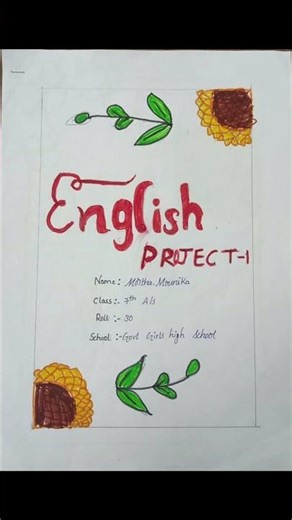 English
PROJECT-1
Name: Mounika
Class:- 7th A/s
Roll :- 30
School :- Govt Girls high School